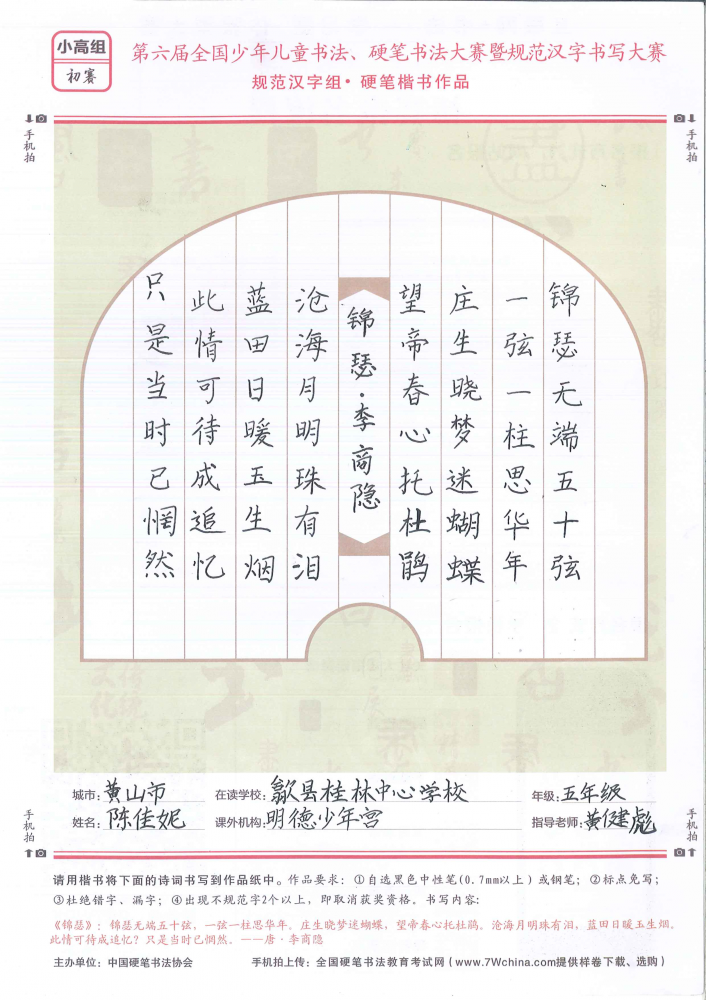 小高组
初赛
第六届全国少年儿童书法、硬笔书法大赛暨规范汉字书写大赛
规范汉字组·硬笔楷书作品
手机拍
手机拍
锦瑟无端五十弦
一弦一柱思华年
庄生晓梦迷蝴蝶
望帝春心托杜鹃
锦瑟·李商隐
沧海月明珠有泪
蓝田日暖玉生烟
此情可待成追忆
只是当时已惘然
城市:黄山市 在读学校:歙县桂林中心学校 年级:五年级
姓名:陈佳妮 课外机构:明德少年宫 指导老师:黄健彪
手机拍
手机拍
请用楷书将下面的诗词书写到作品纸中。作品要求:①自选黑色中性笔(0.7mm以上)或钢笔;②标点免写;
③杜绝错字、漏字;④出现不规范字2个以上,即取消获奖资格。书写内容:
《锦瑟》:锦瑟无端五十弦,一弦一柱思华年。庄生晓梦迷蝴蝶,望帝春心托杜鹃。沧海月明珠有泪,蓝田日暖玉生烟。
此情可待成追忆?只是当时已惘然。——唐·李商隐
主办单位:中国硬笔书法协会 手机拍上传:全国硬笔书法教育考试网(www.7Wchina.com提供样卷下载、选购)